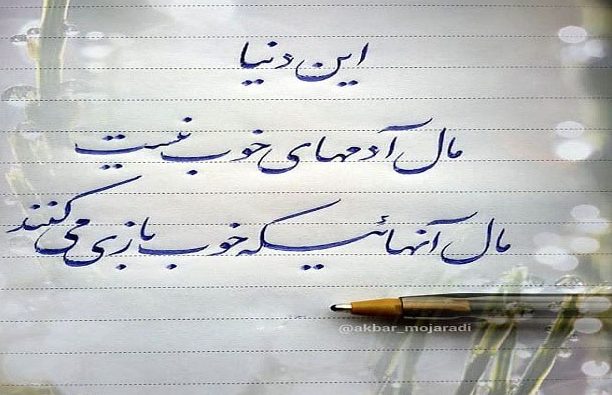 این دنیا
مال آدمهای خوب نیست
مال آنهائیکه خوب بازی می کنند
@akbar_mojaradi